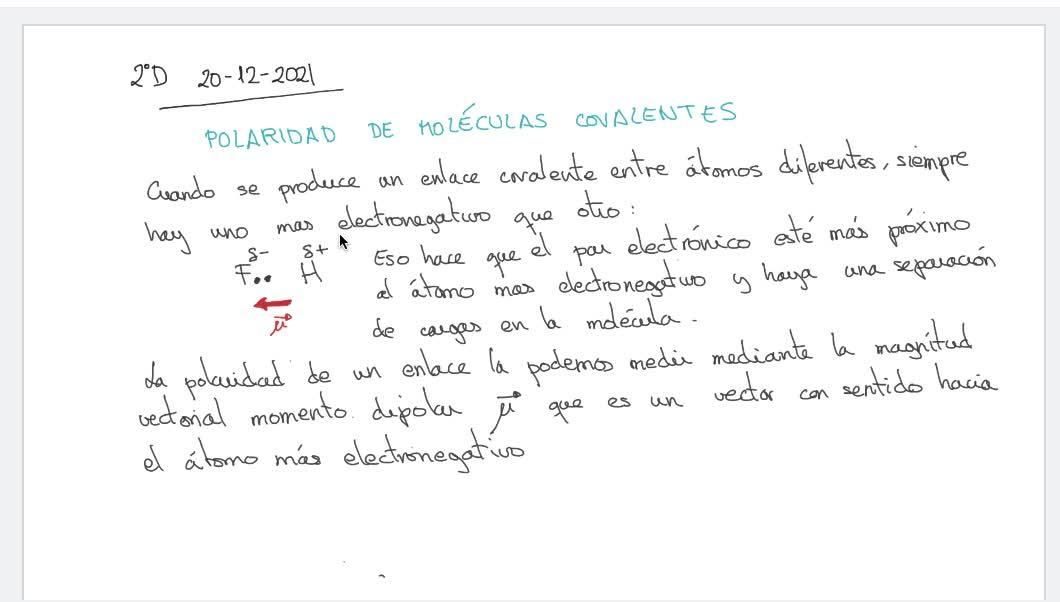 2ºD 20-12-2021
POLARIDAD DE MOLÉCULAS COVALENTES
Cuando se produce un enlace covalente entre átomos diferentes, siempre
hay uno mas electronegativo que otro:
δ- δ+
F.. H
Eso hace que el par electrónico esté más próximo
al átomo mas electronegativo y haya una separación
μ⃗
de cargas en la molécula.
La polaridad de un enlace la podemos medir mediante la magnitud
vectorial momento dipolar μ⃗ que es un vector con sentido hacia
el átomo más electronegativo